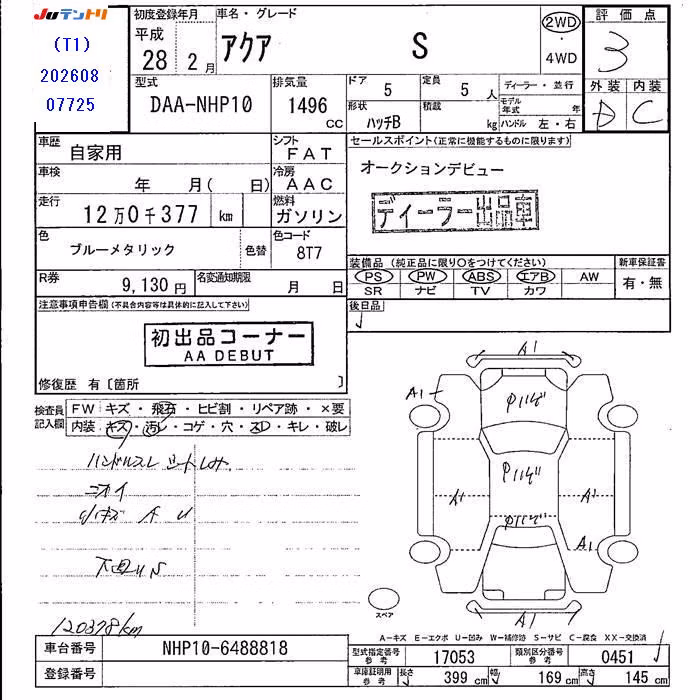 JUテントリ
(T1)
202608
07725
初度登録年月
平成
28年 2月
車名・グレード
アクア S
2WD
・
4WD
評価点
3
外装 内装
D C
型式
DAA-NHP10
排気量
1496 CC
ドア
5
定員
5人
形状
ハッチB
積載
kg
ディーラー・並行
モデル年式 年
ハンドル 左・右
車歴
自家用
シフト
FAT
車検
年 月( 日)
冷房
AAC
走行
12万0千377 km
燃料
ガソリン
色
ブルーメタリック
色替
色コード
8T7
R券
9,130円
名変通知期限
月 日
セールスポイント(正常に機能するものに限ります)
オークションデビュー
ディーラー出品車
装備品(純正品に限り○をつけてください)
PS PW ABS エアB AW
SR ナビ TV カワ
新車保証書
有・無
後日品
注意事項申告欄(不具合内容等は具体的に記入して下さい)
初出品コーナー
AA DEBUT
修復歴 有〔箇所 〕
検査員記入欄
FW キズ・飛石・ヒビ割・リペア跡・×要
内装 キズ・汚レ・コゲ・穴・スレ・キレ・破レ
ハンドルスレ シートしみ
ニオイ
小キズ A U
下回りS
120378km
A1
A1
A1
A1
A1
A1
スペア
A-キズ E-エクボ U-凹み W-補修跡 S-サビ C-腐食 XX-交換済
車台番号 NHP10-6488818
登録番号
型式指定番号 参考 17053
類別区分番号 参考 0451
車庫証明用 参考
長さ 399 cm
幅 169 cm
高さ 145 cm